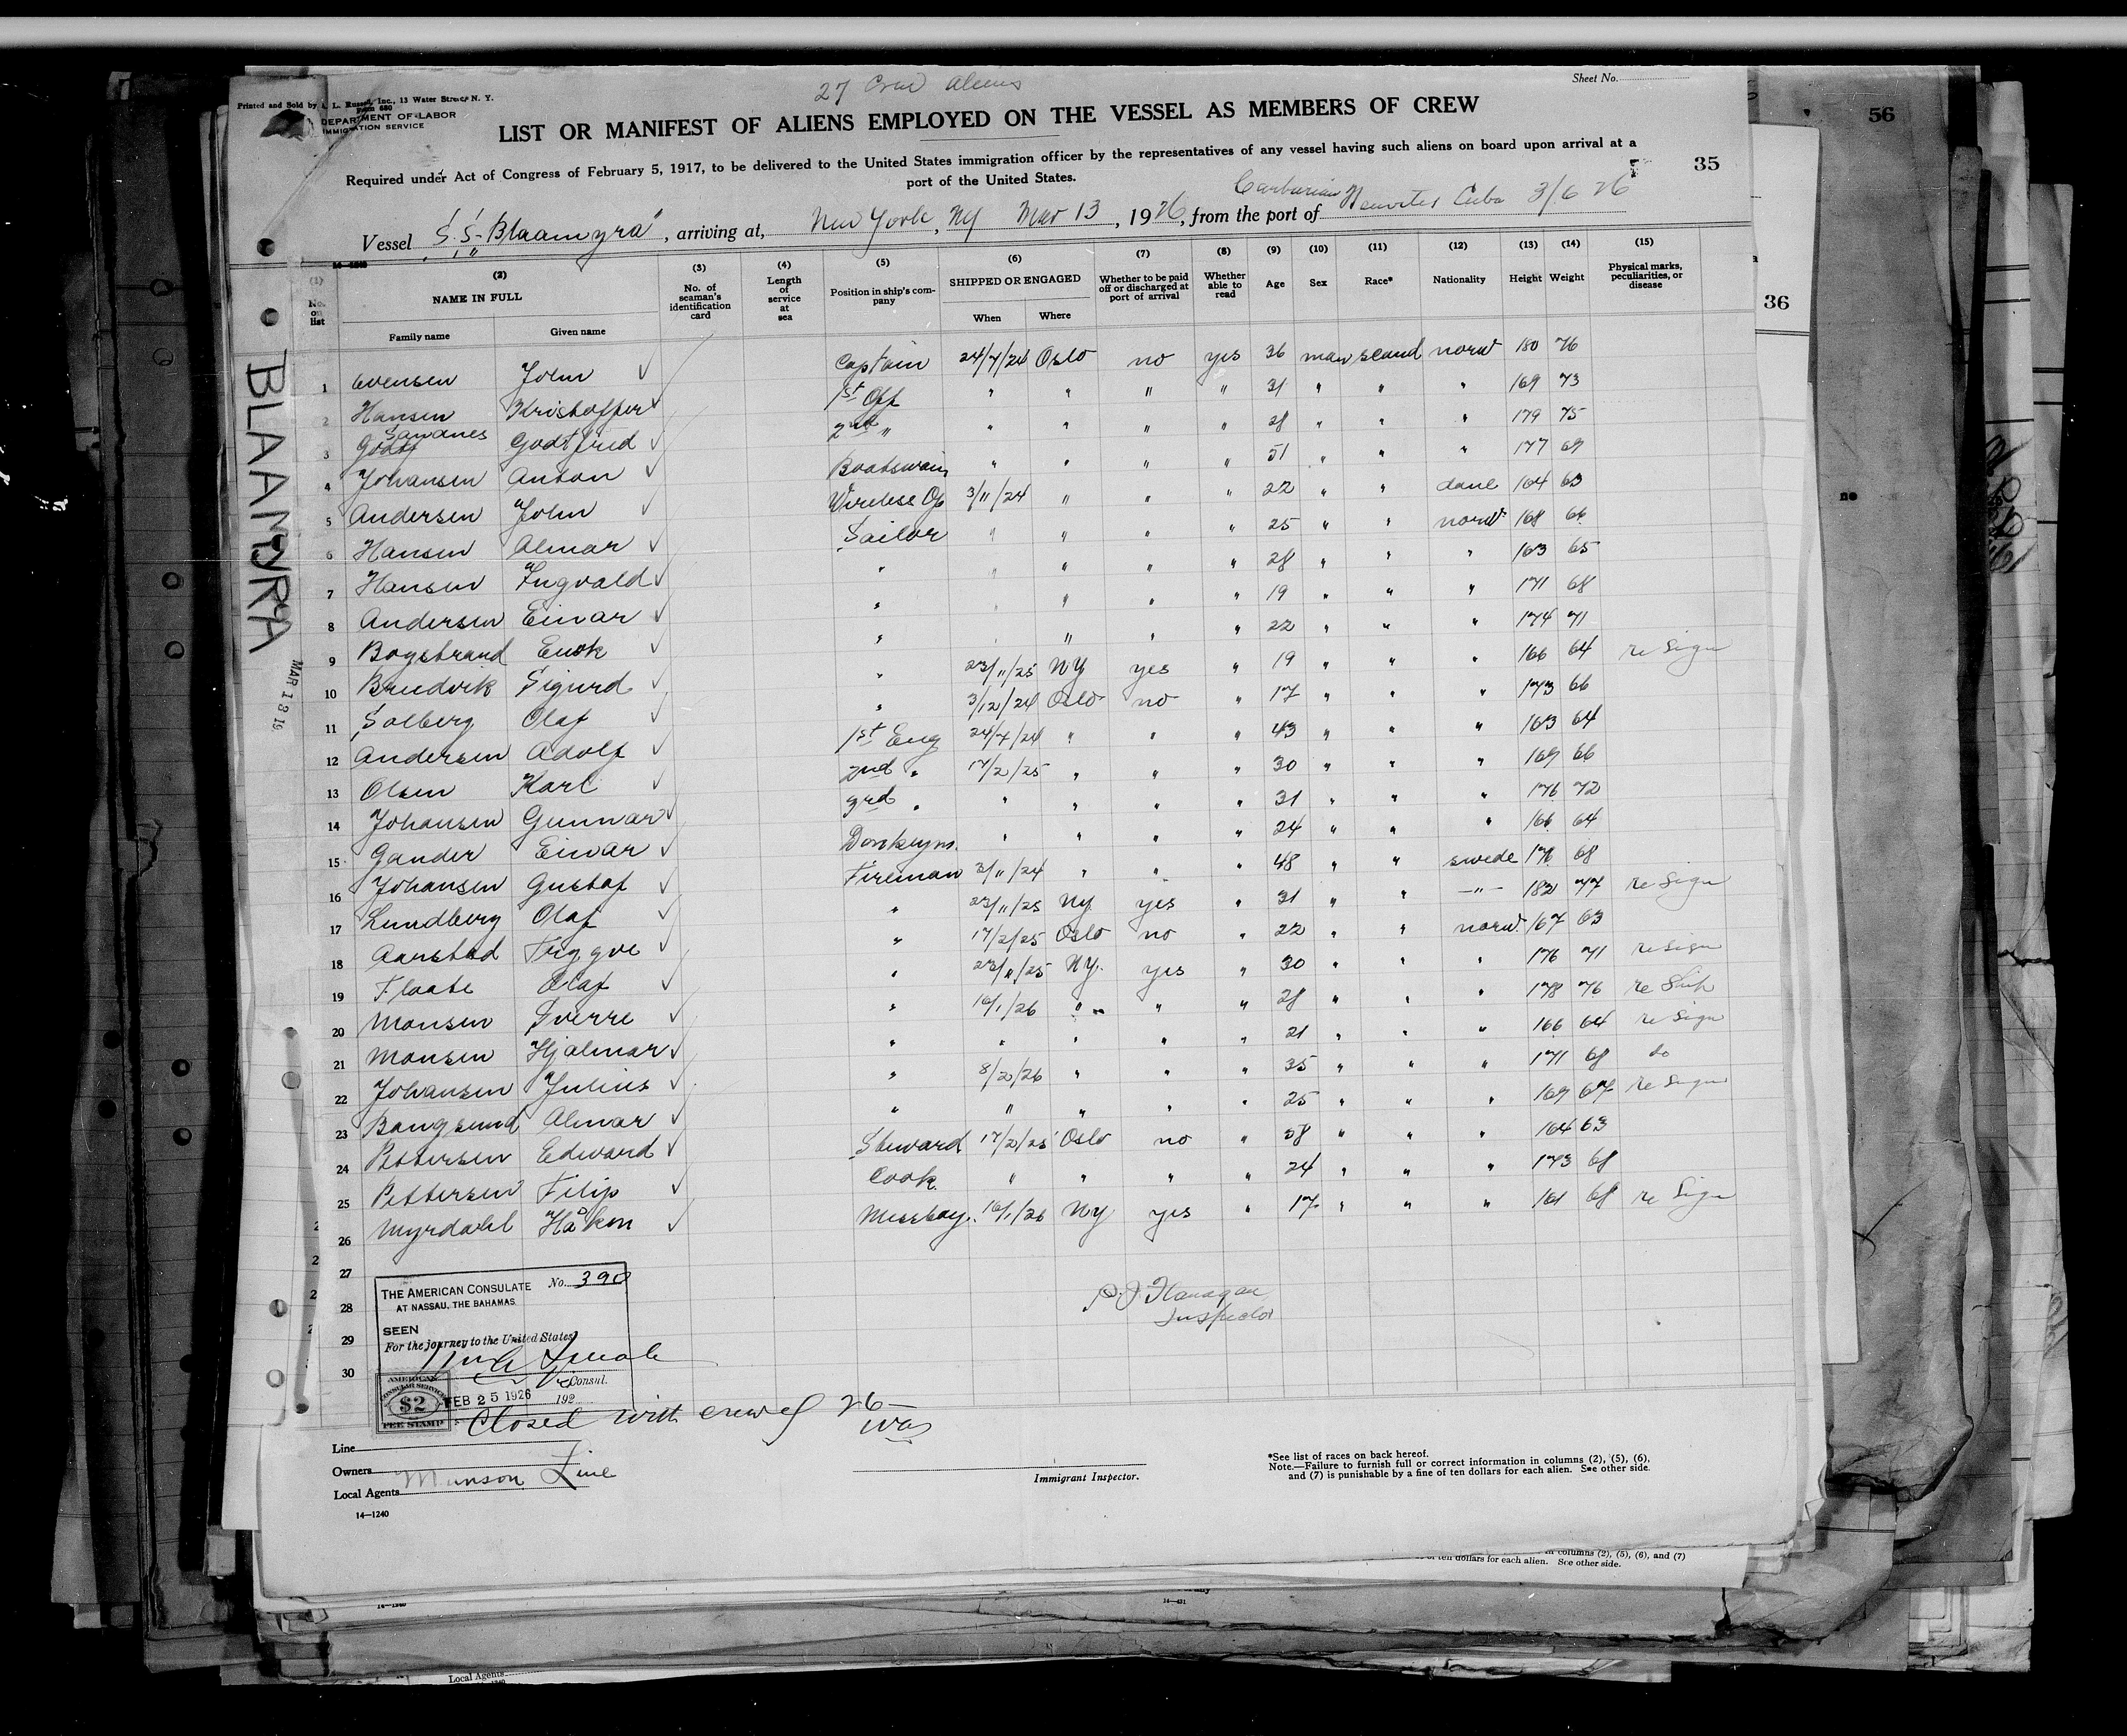 27 Crew Aliens
Sheet No.
Printed and Sold by L. Russell, Inc., 13 Water Street, N. Y.
Form 680
DEPARTMENT OF LABOR
IMMIGRATION SERVICE
LIST OR MANIFEST OF ALIENS EMPLOYED ON THE VESSEL AS MEMBERS OF CREW
Required under Act of Congress of February 5, 1917, to be delivered to the United States immigration officer by the representatives of any vessel having such aliens on board upon arrival at a
port of the United States.
35
Vessel S.S. "Blaamyra", arriving at, New York, NY Mar 13, 1926, from the port of Cuba 3/6 26
(1) (2) (3) (4) (5) (6) (7) (8) (9) (10) (11) (12) (13) (14) (15)
No. on list NAME IN FULL No. of seaman's identification card Length of service at sea Position in ship's company SHIPPED OR ENGAGED Whether to be paid off or discharged at port of arrival Whether able to read Age Sex Race* Nationality Height Weight Physical marks, peculiarities, or disease
Family name Given name When Where
1 Evensen John ✓ Captain 24/7/24 Oslo no yes 36 man scand norw 180 76
2 Hansen Kristoffer ✓ 1st Off " " " " 31 " " " 169 73
3 Sandnes Godtfred ✓ 2nd " " " " " 28 " " " 179 75
4 Johansen Anton ✓ Boatswain " " " " 51 " " " 177 69
5 Andersen John ✓ Wireless Op 3/11/24 " " " 22 " " dane 164 63
6 Hansen Almar ✓ Sailor " " " " 25 " " norw 168 66
7 Hansen Ingvald ✓ " " " " " 28 " " " 163 65
8 Andersen Einar ✓ " " " " " 19 " " " 171 68
9 Bogstrand Enok ✓ " " " " " 22 " " " 174 71
10 Bredvik Sigurd ✓ " 23/11/25 NY yes " 19 " " " 166 64 re Sign
11 Solberg Olaf ✓ " 3/12/24 Oslo no " 17 " " " 173 66
12 Andersen Adolf ✓ 1st Eng 24/7/24 " " " 43 " " " 163 64
13 Olsen Karl ✓ 2nd " 17/2/25 " " " 30 " " " 169 66
14 Johansen Gunnar ✓ 3rd " " " " " 31 " " " 176 72
15 Gander Einar ✓ Donkeym. " " " " 24 " " " 166 64
16 Johansen Gustaf ✓ Fireman 3/11/24 " " " 48 " " swede 171 68
17 Lundberg Olaf ✓ " 23/11/25 Ny yes " 31 " " -"- 182 77 re Sign
18 Aarstad Triggve ✓ " 17/2/25 Oslo no " 22 " " norw 167 63
19 Flaate Olaf ✓ " 23/11/25 NY. yes " 30 " " " 176 71 re sign
20 Monsen Sverre ✓ " 16/1/26 " " " 28 " " " 178 76 re Ship
21 Monsen Hjalmar ✓ " " " " " 21 " " " 166 64 re sign
22 Johansen Julius ✓ " 8/2/26 " " " 35 " " " 171 68 do
23 Bangsund Almar ✓ " " " " " 25 " " " 169 67 re Sign
24 Pettersen Edward ✓ Steward 17/2/25 Oslo no " 58 " " " 164 63
25 Pettersen Filip ✓ Cook " " " " 24 " " " 173 68
26 Myrdahl Håkon ✓ Messboy. 16/1/26 Ny yes " 17 " " " 161 68 re Sign
27
28
29
30
BLAAMYRA
MAR 13 19
P. J. Flanagan
Inspector
THE AMERICAN CONSULATE No. 390
AT NASSAU, THE BAHAMAS
SEEN
For the journey to the United States
Vice Consul.
FEB 25 1926 192
AMERICAN
CONSULAR SERVICE
$2
FEE STAMP
Closed with crew of 26
Line
Owners
Munson Line
Local Agents
14—1240
Immigrant Inspector.
*See list of races on back hereof.
Note.—Failure to furnish full or correct information in columns (2), (5), (6),
and (7) is punishable by a fine of ten dollars for each alien. See other side.
36
56
no
in columns (2), (5), (6), and (7)
of ten dollars for each alien. See other side.
14—1240
14—431
Local Agents